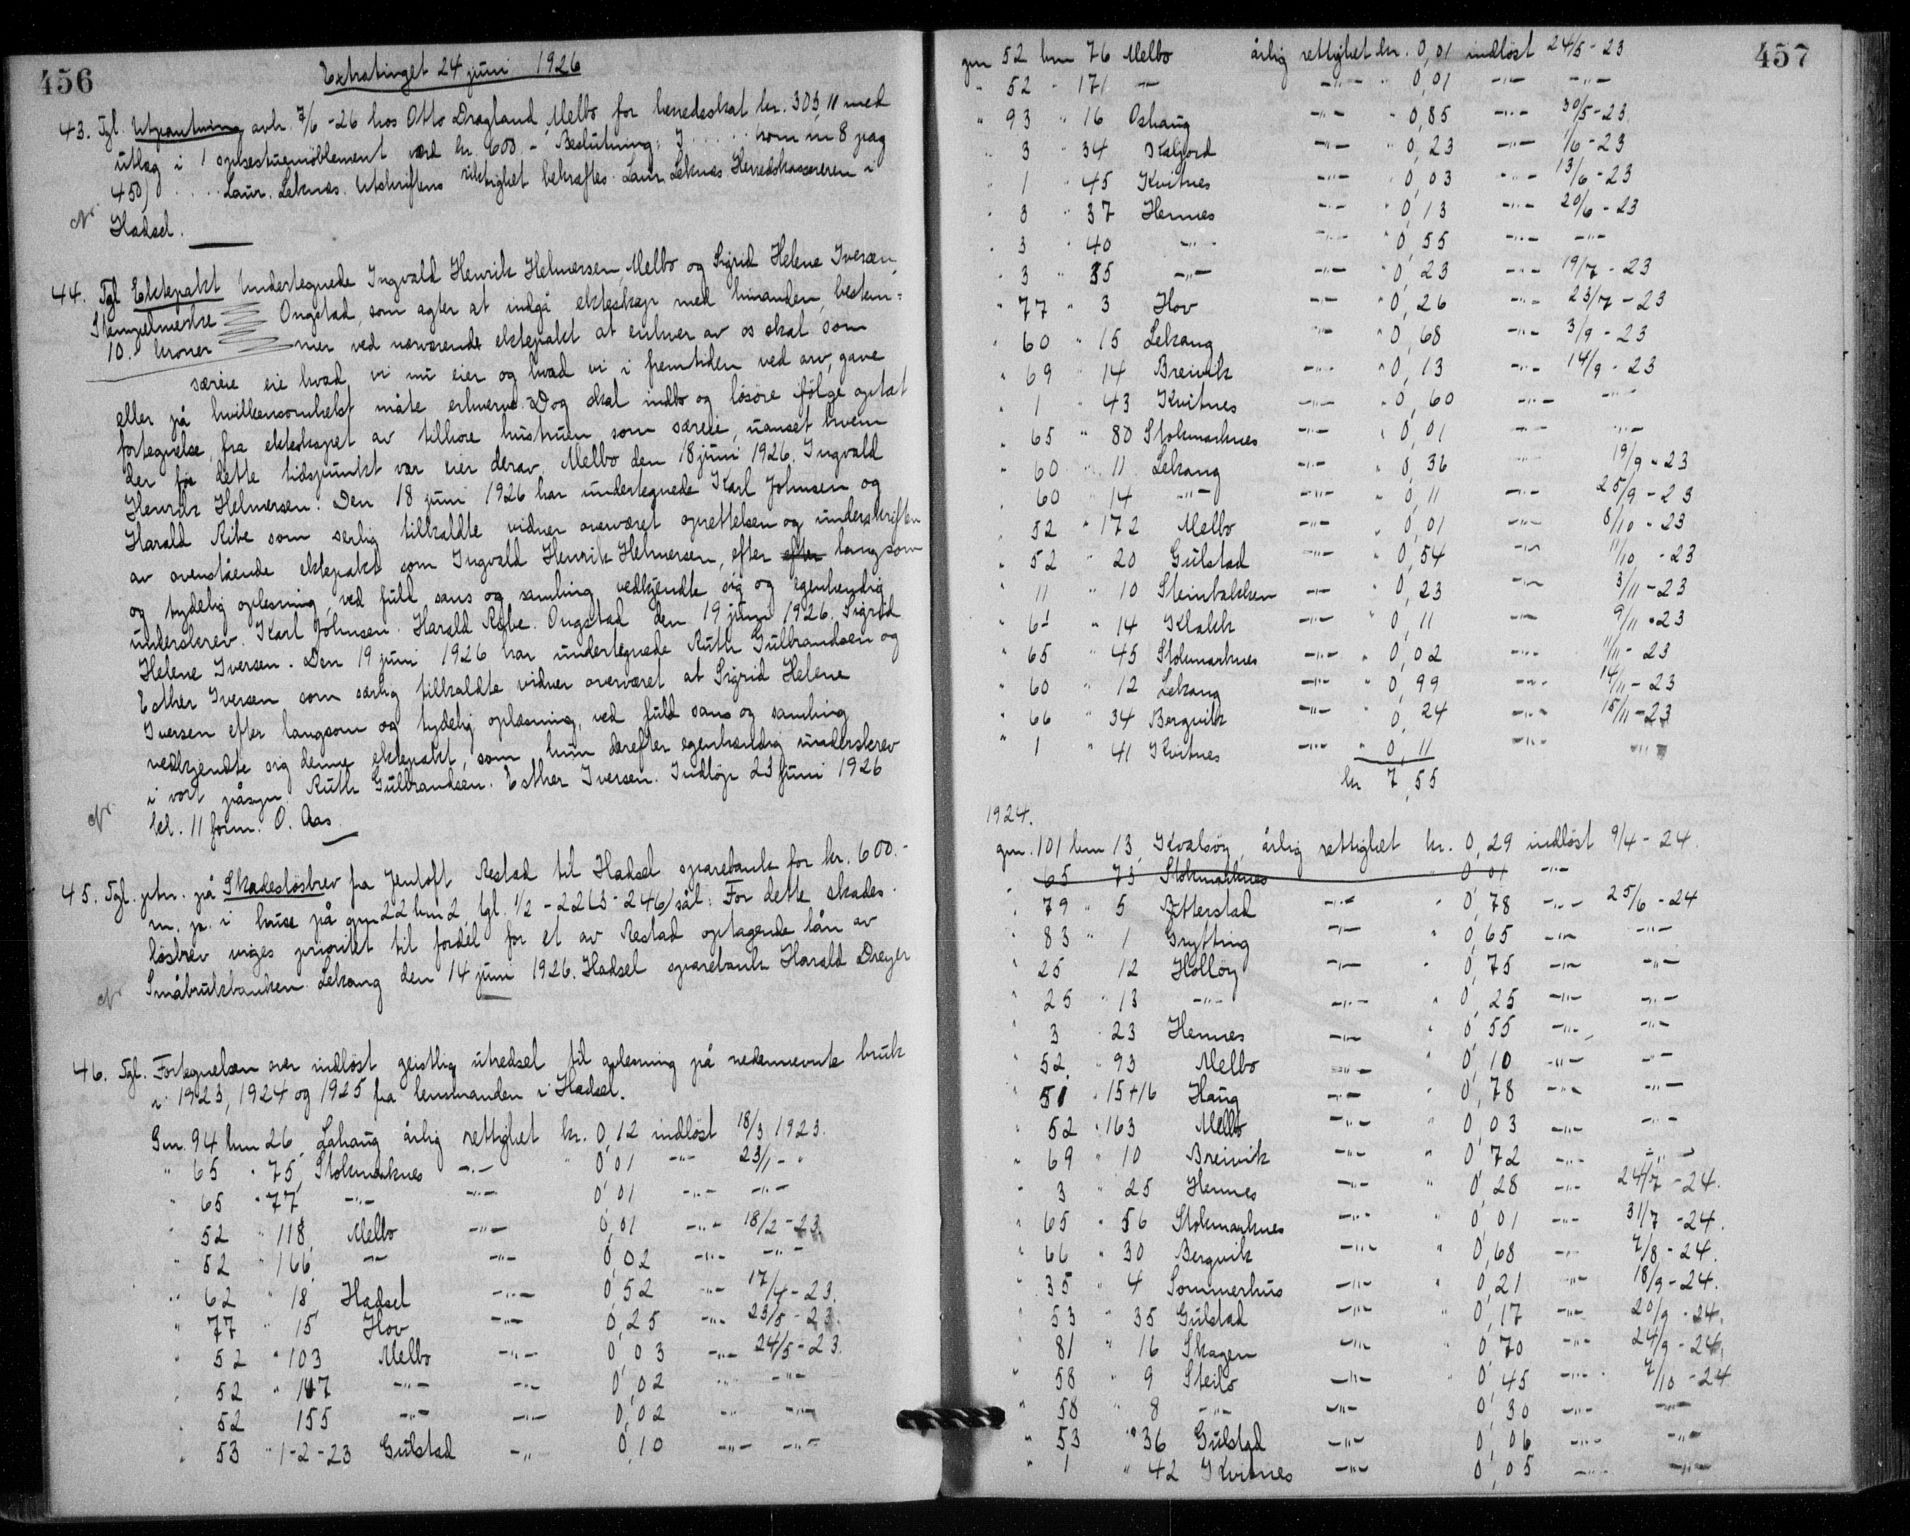 456
Extratinget 24 juni 1926
43. Tgl. Utpantning avh. 7/6 - 26 hos Otto Dragland, Melbo for herredsskat kr. 303,11 med
utlæg i 1 spisestuemöblement værd kr. 600.- Beslutning: J . . . . . som in 8 pag
450) . . . . . Laur. Leknes. Utskriftens riktighet bekræftes Laur. Leknes Herredskassereren i
Hadsel.
44. Tgl. Ektepakt Undertegnede Ingvald Henrik Helmersen Melbo og Sigrid Helene Iversen,
Stempelmerke Ongstad, som agter at indgå ekteskap med hinanden, bestem=
10.- kroner mer ved nærværende ektepakt at enhver av os skal som
særeie eie hvad vi nu eier og hvad vi i fremtiden ved arv, gave
eller på hvilkensomhelst måte erhverve. Dog skal indbo og lösöre ifölge optat
fortegnelse, fra ekteskapet av tilhöre hustruen som særeie, uanset hvem
der för dette tidspunkt var eier derav. Melbo den 18 juni 1926. Ingvald
Henrik Helmersen. Den 18 juni 1926 har undertegnede Karl Johnsen og
Harald Ribe som særlig tilkaldte vidner overværet oprettelsen og underskriften
av ovenstående ektepakt som Ingvald Henrik Helmersen, efter efter langsom
og tydelig oplæsning, ved fuld sans og samling vedkjendte sig og egenhændig
underskrev. Karl Johnsen. Harald Ribe. Ongstad den 19 juni 1926. Sigrid
Helene Iversen. Den 19 juni 1926 har undertegnede Ruth Gulbrandsen og
Esther Iversen som særlig tilkaldte vidner overværet at Sigrid Helene
Iversen efter langsom og tydelig oplæsning, ved fuld sans og samling
vedkjendte sig denne ektepakt, som hun derefter egenhændig underskrev
i vort påsyn. Ruth Gulbrandsen. Esther Iversen. Indløp 23 juni 1926
kl. 11 form. O. Aas.
45. Tgl. ptn. på Skadeslösbrev fra Jentoft Restad til Hadsel sparebank for kr. 600.-
m. p. i huse på gm 22 bm 2, tgl. 1/2 - 22 (3 - 246) sål: For dette skades-
lösbrev viges prioritet til fordel for et av Restad optagende lån av
Småbrukbanken. Lekang den 14 juni 1926. Hadsel sparebank Harald Dreyer
46. Tgl. Fortegnelsen over indlöst geistlig utredsel til aplesning på nedennevnte bruk
i 1923, 1924 og 1925 fra lensmanden i Hadsel.
Gm. 94 bm 26, Lahaug årlig rettighet kr. 0,12 indlöst 18/3 1923.
" 65 " 75, Stokmarknes -"- " 0,01 -"- 23/1 - "
" 65 " 77 -"- -"- 0,01 -"- -"-
" 52 " 118, Melbo -"- 0,01 -"- 18/2 - 23
" 52 " 166, -"- -"- 0,02 -"- -"-
" 62 " 18 Hadsel -"- 0,52 -"- 17/4 - 23.
" 77 " 15 Hov -"- 0,25 -"- 23/5 - 23.
" 52 " 103 Melbo -"- 0,03 -"- 24/5 - 23.
" 52 " 147 -"- -"- 0,02 " -"-
" 52 155 -"- -"- 0,02 " -"-
" 53 " 1-2-23 Gulstad -"- 0,10 -"- -"-
457
gm 52 bm 76 Melbo årlig rettighet kr. 0,01 indlöst 24/5 - 23
" 52 " 171 -"- -"- " 0,01 -"- -"-
" 93 " 16 Oshaug -"- " 0,85 -"- 30/5 - 23.
" 3 " 34 Kaljord -"- " 0,23 -"- 1/6 - 23
" 1 " 45 Kvitnes -"- " 0,03 -"- 13/6 - 23
" 3 " 37 Hennes -"- " 0,13 -"- 20/6 - 23
" 3 " 40 -"- -"- " 0,55 -"- -"-
" 3 " 35 -"- -"- " 0,23 -"- 19/7 - 23
" 77 " 3 Hov -"- " 0,26 -"- 23/7 - 23
" 60 " 15 Lekang -"- " 0,68 -"- 3/9 - 23
" 69 " 14 Breivik -"- " 0,13 -"- 14/9 - 23
" 1 " 43 Kvitnes -"- " 0,60 -"- -"-
" 65 " 80 Stokmarknes -"- " 0,01 -"- -"-
" 60 " 11 Lekang -"- " 0,36 -"- 19/9 - 23
" 60 " 14 -"- -"- " 0,11 -"- 25/9 - 23
" 52 " 172 Melbo -"- " 0,01 -"- 8/10 - 23
" 52 " 20 Gulstad -"- " 0,54 -"- 11/10 - 23
" 11 " 10 Steinbakken -"- " 0,23 -"- 3/11 - 23
" 61 " 14 Klakk -"- " 0,11 -"- 9/11 - 23
" 65 " 45 Stokmarknes -"- " 0,02 -"- 11/11 - 23
" 60 " 12 Lekang -"- " 0,99 -"- 14/11 - 23
" 66 " 34 Bergvik -"- " 0,24 -"- 15/11 - 23
" 1 " 41 Kvitnes -"- " 0,11 -"- -"-
kr 7,55
1924.
gm. 101 bm 13, Kvalsöy, årlig rettighet kr. 0,29 indlöst 9/4 - 24.
65 73 Stokmarknes " 0,01 -"-
" 79 " 5 Bitterstad -"- " 0,78 -"- 25/6 - 24
" 83 " 1 Grytting -"- " 0,65 -"- -"-
" 25 12 Holloy -"- " 0,75 -"- -"-
" 25 " 13 -"- -"- " 0,25 -"- -"-
" 3 " 23 Hennes -"- " 0,55 -"- -"-
" 52. " 93 Melbo -"- " 0,10 -"- -"-
" 51 " 15+16 Haug -"- " 0,78 -"- -"-
" 52 " 163 Melbo -"- " 0,03 -"- -"-
" 69 " 10 Breivik -"- " 0,72 -"- -"-
" 3 " 25 Hennes -"- " 0,28 -"- 24/7 - 24.
" 65 " 56 Stokmarknes -"- " 0,01 -"- 31/7 - 24.
" 66 " 30 Bergvik -"- " 0,68 -"- 7/8 - 24.
" 35 " 4 Sommerhus -"- " 0,21 -"- 18/9 - 24.
" 53 " 35 Gulstad -"- " 0,17 -"- 20/9 - 24.
" 81 " 16 Skagen -"- " 0,70 -"- 24/9 - 24.
" 58 " 9 Steilo -"- " 0,45 -"- 7/10 - 24
" 58 " 8 -"- -"- 0,30 -"- -"-
" 53 " 36 Gulstad -"- 0,06 -"- -"-
" 1 " 42 Kvitnes -"- 0,05 -"- -"-